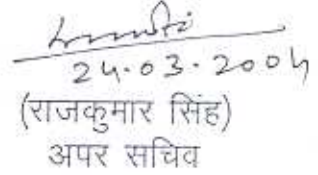 24.03.2004
(राजकुमार सिंह)
अपर सचिव